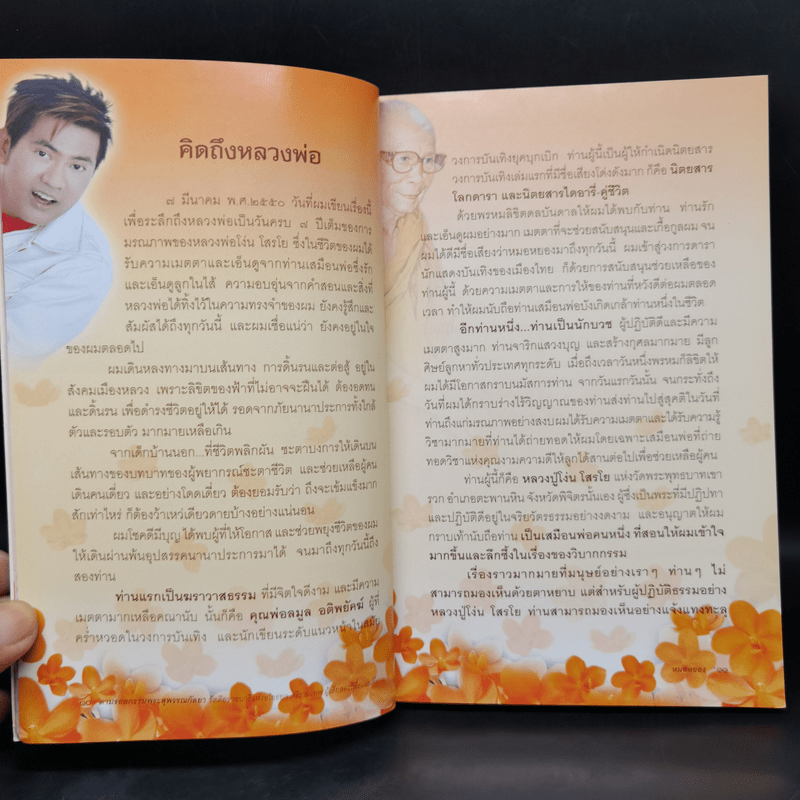 คิดถึงหลวงพ่อ
๗ มีนาคม พ.ศ.๒๕๕๐ วันที่ผมเขียนเรื่องนี้
เพื่อระลึกถึงหลวงพ่อเป็นวันครบ ๗ ปีเต็มของการ
มรณภาพของหลวงพ่อโง่น โสรโย ซึ่งในชีวิตของผมได้
รับความเมตตาและเอ็นดูจากท่านเสมือนพ่อซึ่งรัก
และเอ็นดูลูกในไส้ ความอบอุ่นจากคำสอนและสิ่งที่
หลวงพ่อได้ทิ้งไว้ในความทรงจำของผม ยังคงรู้สึกและ
สัมผัสได้ถึงทุกวันนี้ และผมเชื่อแน่ว่า ยังคงอยู่ในใจ
ของผมตลอดไป
ผมเดินหลงทางมาบนเส้นทาง การดิ้นรนและต่อสู้ อยู่ใน
สังคมเมืองหลวง เพราะลิขิตของฟ้าที่ไม่อาจจะฝืนได้ ต้องอดทน
และดิ้นรน เพื่อดำรงชีวิตอยู่ให้ได้ รอดจากภัยนานาประการทั้งใกล้
ตัวและรอบตัว มากมายเหลือเกิน
จากเด็กบ้านนอก...ที่ชีวิตพลิกผัน ชะตาบงการให้เดินบน
เส้นทางของบทบาทของผู้พยากรณ์ชะตาชีวิต และช่วยเหลือผู้คน
เดินคนเดี่ยว และอย่างโดดเดี่ยว ต้องยอมรับว่า ถึงจะเข้มแข็งมาก
สักเท่าไหร่ ก็ต้องว้าเหว่เดียวดายบ้างอย่างแน่นอน
ผมโชคดีมีบุญ ได้พบผู้ที่ให้โอกาส และช่วยพยุงชีวิตของผม
ให้เดินผ่านพ้นอุปสรรคนานาประการมาได้ จนมาถึงทุกวันนี้ถึง
สองท่าน
ท่านแรกเป็นฆราวาสธรรม ที่มีจิตใจดีงาม และมีความ
เมตตามากเหลือคณานับ นั้นก็คือ คุณพ่อลมูล อติพยัคฆ์ ผู้ที่
คร่ำหวอดในวงการบันเทิง และนักเขียนระดับแนวหน้าในสมัย
วงการบันเทิงยุคบุกเบิก ท่านผู้นี้เป็นผู้ให้กำเนิดนิตยสาร
วงการบันเทิงเล่มแรกที่มีชื่อเสียงโด่งดังมาก ก็คือ นิตยสาร
โลกดารา และนิตยสารไดอารี่-คู่ชีวิต
ด้วยพรหมลิขิตดลบันดาลให้ผมได้พบกับท่าน ท่านรัก
และเอ็นดูผมอย่างมาก เมตตาที่จะช่วยสนับสนุนและเกื้อกูลผม จน
ผมได้ดีมีชื่อเสียงว่าหมอหยองมาถึงทุกวันนี้ ผมเข้าสู่วงการดารา
นักแสดงบันเทิงของเมืองไทย ก็ด้วยการสนับสนุนช่วยเหลือของ
ท่านผู้นี้ ด้วยความเมตตาและการให้ของท่านที่หวังดีต่อผมตลอด
เวลา ทำให้ผมนับถือท่านเสมือนพ่อบังเกิดเกล้าท่านหนึ่งในชีวิต
อีกท่านหนึ่ง...ท่านเป็นนักบวช ผู้ปฏิบัติดีและมีความ
เมตตาสูงมาก ท่านจาริกแสวงบุญ และสร้างกุศลมากมาย มีลูก
ศิษย์ลูกหาทั่วประเทศทุกระดับ เมื่อถึงเวลาวันหนึ่งพรหมก็ลิขิตให้
ผมได้มีโอกาสกราบนมัสการท่าน จากวันแรกวันนั้น จนกระทั่งถึง
วันที่ผมได้กราบร่างไร้วิญญาณของท่านส่งท่านไปสู่สุคติในวันที่
ท่านถึงแก่มรณภาพอย่างสงบผมได้รับความเมตตาและได้รับความรู้
วิชามากมายที่ท่านได้ถ่ายทอดให้ผมโดยเฉพาะเสมือนพ่อที่ถ่าย
ทอดวิชาแห่งคุณงามความดีให้ลูกได้สานต่อไปเพื่อช่วยเหลือผู้คน
ท่านผู้นี้ก็คือ หลวงปู่โง่น โสรโย แห่งวัดพระพุทธบาทเขา
รวก อำเภอตะพานหิน จังหวัดพิจิตรนั้นเอง ผู้ซึ่งเป็นพระที่มีปฏิปทา
และปฏิบัติดีอยู่ในจริยวัตรธรรมอย่างงดงาม และอนุญาตให้ผม
กราบเท้านับถือท่าน เป็นเสมือนพ่อคนหนึ่ง ที่สอนให้ผมเข้าใจ
มากขึ้นและลึกซึ้งในเรื่องของวิบากกรรม
เรื่องราวมากมายที่มนุษย์อย่างเราๆ ท่านๆ ไม่
สามารถมองเห็นด้วยตาหยาบ แต่สำหรับผู้ปฏิบัติธรรมอย่าง
หลวงปู่โง่น โสรโย ท่านสามารถมองเห็นอย่างแจ้งแทงทะลุ
ตามรอยกรรมพระสุพรรณกัลยา
หมอหยอง